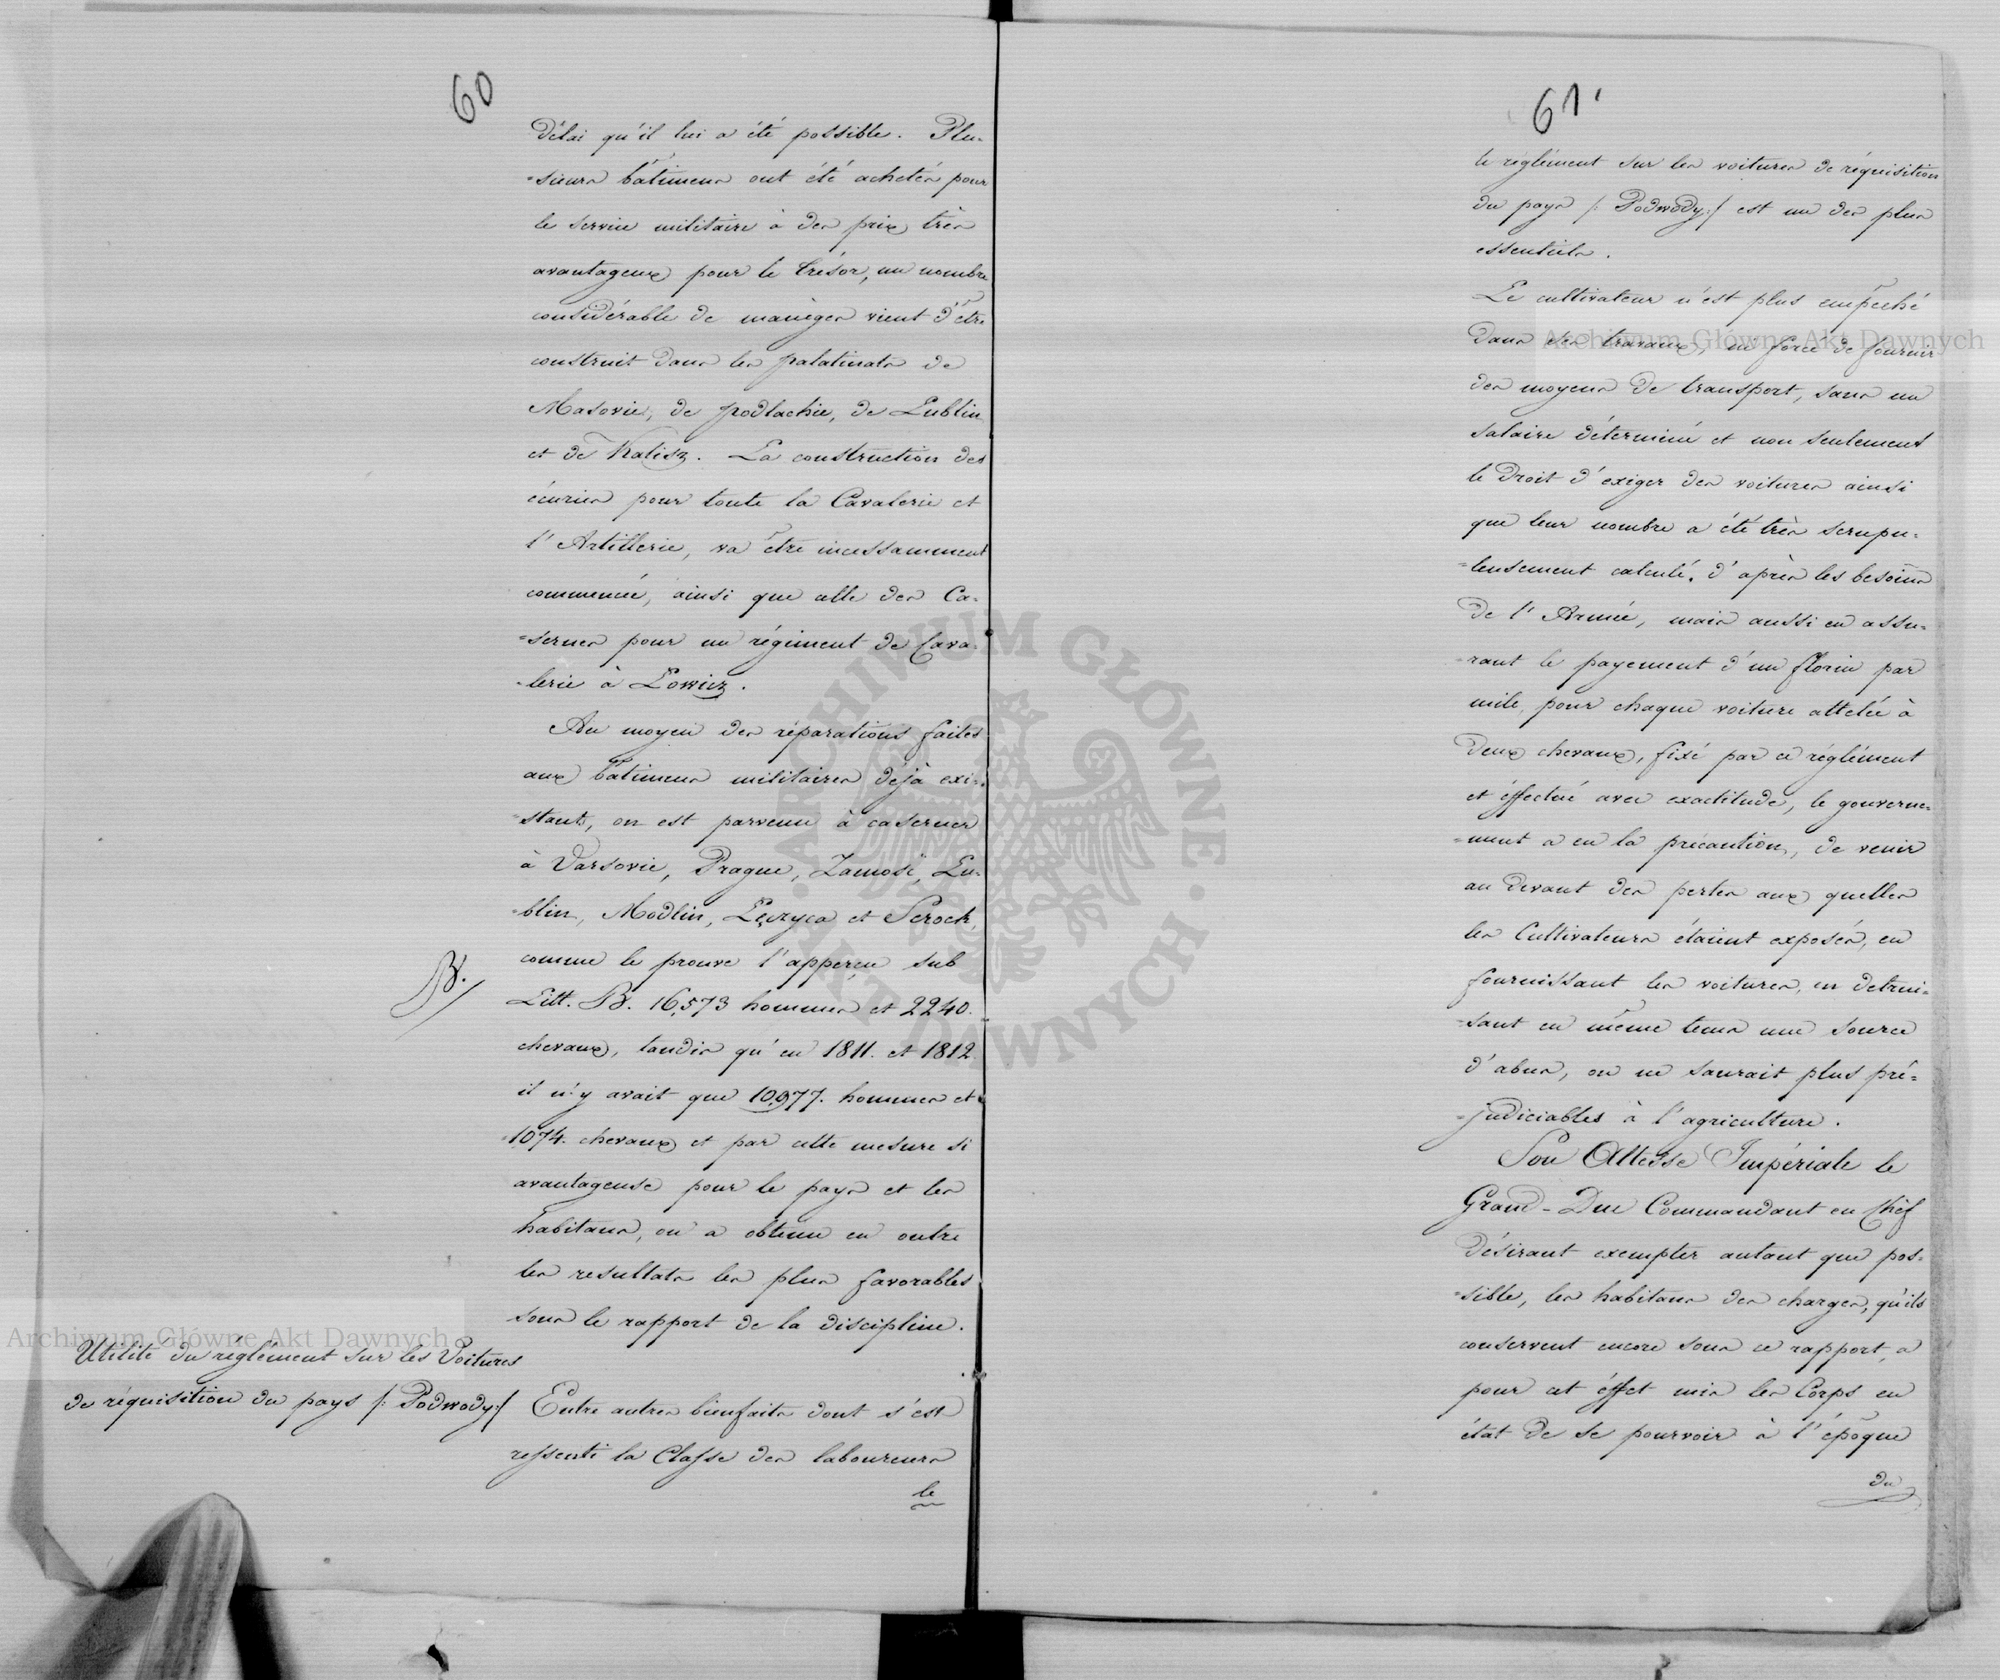 60
délai qu'il lui a été possible. Plu-
=sieurs bâtimens ont été achetés pour
le service militaire à des prix très
avantageux pour le trésor, un nombre
considérable de manèges vient d'être
construit dans les palatinats de
Masovie, de podlachie, de Lublin
et de Kalisz. La construction des
écuries pour toute la Cavalerie et
l'Artillerie, va être incessamment
commencée, ainsi que celle des Ca-
=sernes pour un régiment de Cava-
=lerie à Lowicz.
Au moyen des réparations faites
aux bâtimens militaires déjà exi-
=stants, on est parvenu à caserner
à Varsovie, Prague, Zamość, Lu-
=blin, Modlin, Lęczyca et Serock,
comme le prouve l'apperçu sub
B.
Litt. B. 16,573 hommes et 2240.
chevaux, tandis qu'en 1811. et 1812
il n'y avait que 10,977. hommes et
1074. chevaux et par cette mesure si
avantageuse pour le pays et les
habitans, on a obtenu en outre
les resultats les plus favorables
sous le rapport de la discipline.
Utilité du réglément sur les Voitures
de réquisition du pays /: Podwody:/
Entre autres bienfaits dont s'est
ressenti la Classe des laboureurs
le
61.
le réglément sur les voitures de réquisition
du pays /: Podwody:/ est un des plus
essentiels.
Le cultivateur n'est plus empêché
dans ses travaux, ni forcé de fournir
des moyens de transport, sans un
salaire déterminé et non seulement
le droit d'exiger des voitures ainsi
que leur nombre a été très scrupu-
=leusement calculé, d'après les besoins
de l'Armée, mais aussi en assu-
=rant le payement d'un florin par
mile, pour chaque voiture attelée à
deux chevaux, fixé par ce réglément
et éffectué avec exactitude, le gouverne-
=ment a eu la précaution, de venir
au devant des pertes aux quelles
les Cultivateurs étaient exposés, en
fournissant les voitures, en detrui-
=sant en même tems une source
d'abus, on ne saurait plus pré-
=judiciables à l'agriculture.
Son Altesse Impériale le
Grand-Duc Commandant en Chef
désirant exempter autant que pos-
=sible, les habitans des charges, qu'ils
conservent encore sous ce rapport, a
pour cet éffet mis les Corps en
état de se pourvoir à l'époque
du
Archiwum Główne Akt Dawnych
Archiwum Główne Akt Dawnych
ARCHIWUM GŁÓWNE AKT DAWNYCH